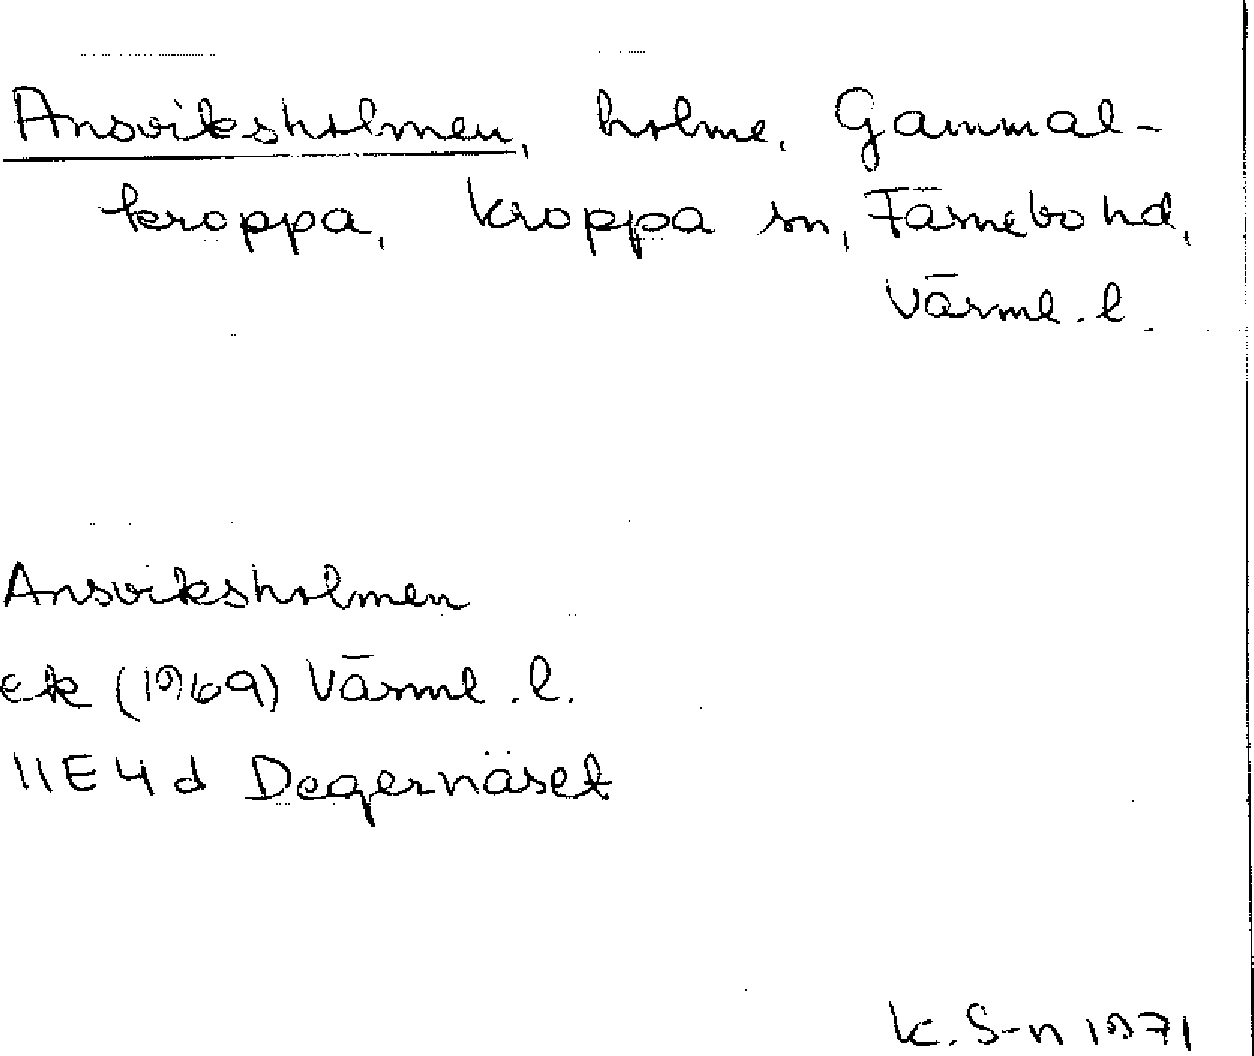 Ansviksholmen, holme, Gammal-
kroppa, Kroppa sn, Färnebo hd,
Värml. l.
Ansviksholmen
ek (1969) Värml. l.
11E4d Degernäset
K. S-n 1971